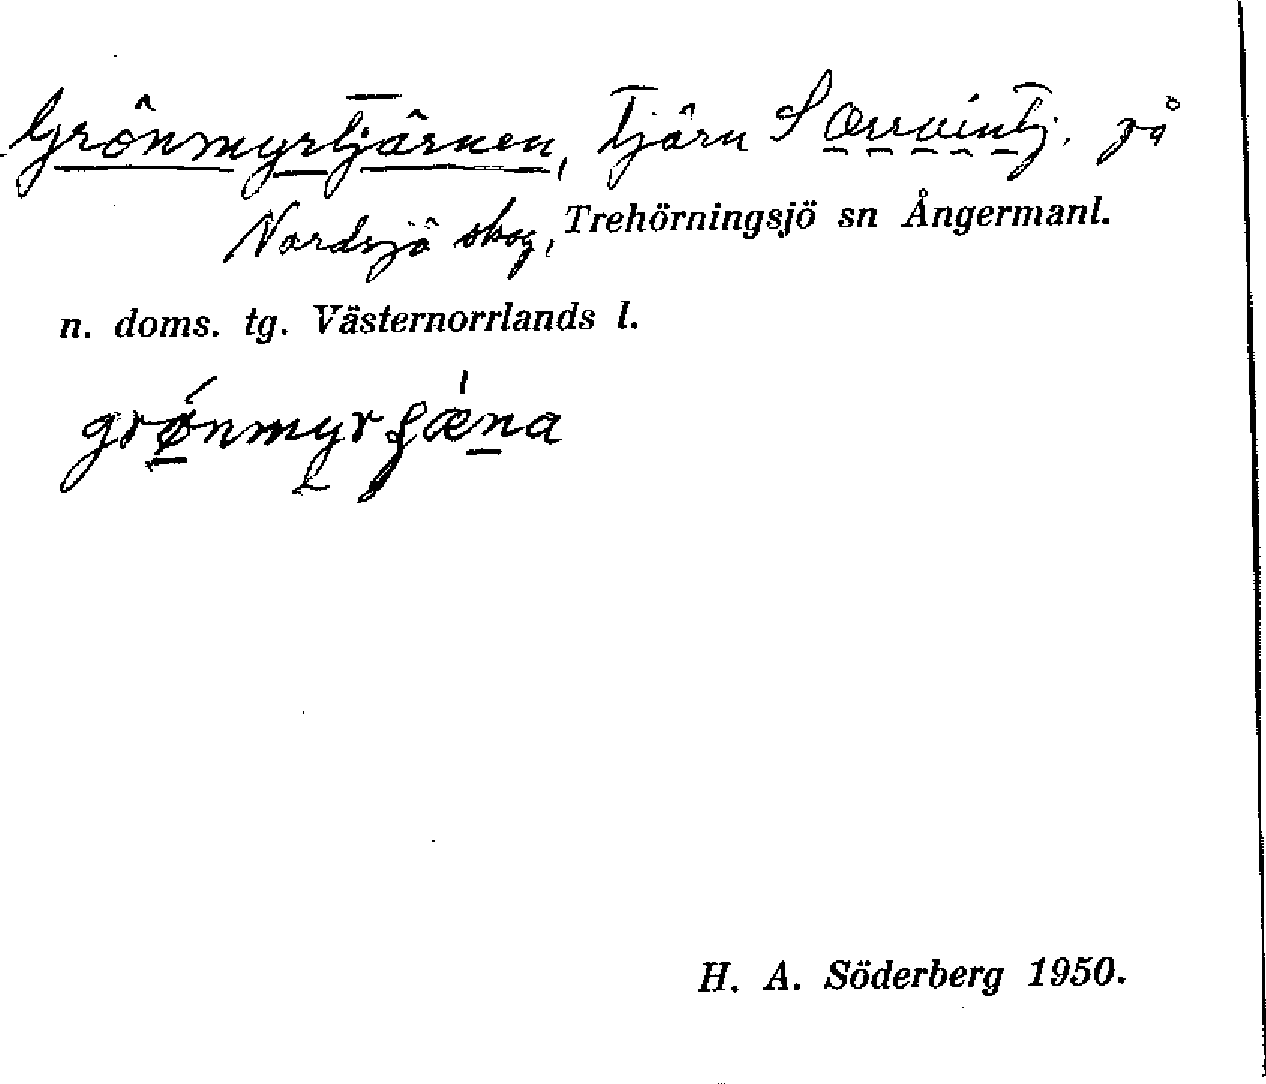 Grönmyrtjärnen, Tjärn S Orrvintj. på
Nordsjö skog, Trehörningsjö sn Ångermanl.
n. doms. tg. Västernorrlands l.
grǿ̲nmyr
H. A. Söderberg 1950.